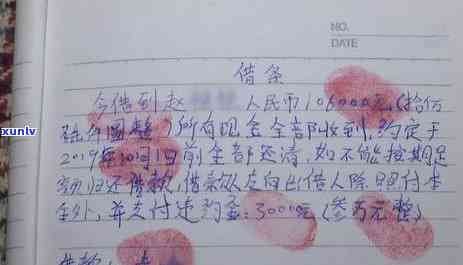 NO.
DATE
借条
今借到赵 人民币106000元(拾
整)所有现金全部收到,约定于
2019年10月1日前全部还清,如不能按期足
额归还借款,借款人应向出借人除照付本
金外,并支付违约金:30000元(叁万元整)
xunlv